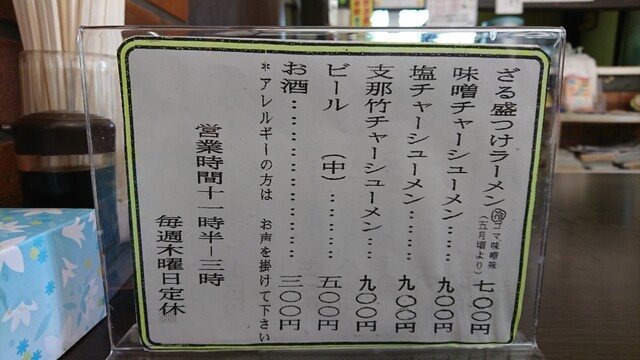 ざる盛つけラーメン㋹ゴマ味噌味(五月頃より)七〇〇円
味噌チャーシューメン‥‥‥九〇〇円
塩チャーシューメン‥‥‥九〇〇円
支那竹チャーシューメン‥‥九〇〇円
ビール (中)‥‥‥‥五〇〇円
お酒‥‥‥‥‥‥‥‥‥‥三〇〇円
*アレルギーの方は お声を掛けて下さい
営業時間十一時半―三時
毎週木曜日定休